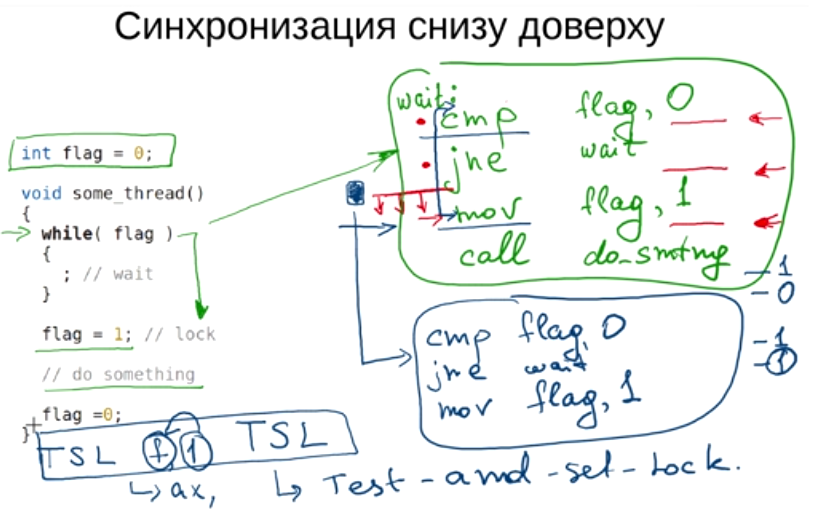 Синхронизация снизу доверху
int flag = 0;
void some_thread()
{
while( flag )
{
; // wait
}
flag = 1; // lock
// do something
flag =0;
}
wait:
cmp flag, 0
jne wait
mov flag, 1
call do_smtng
- 1
- 0
- 1
- 1
cmp flag, 0
jne wait
mov flag, 1
TSL f 1 TSL
↳ ax, ↳ Test-and-set-Lock.